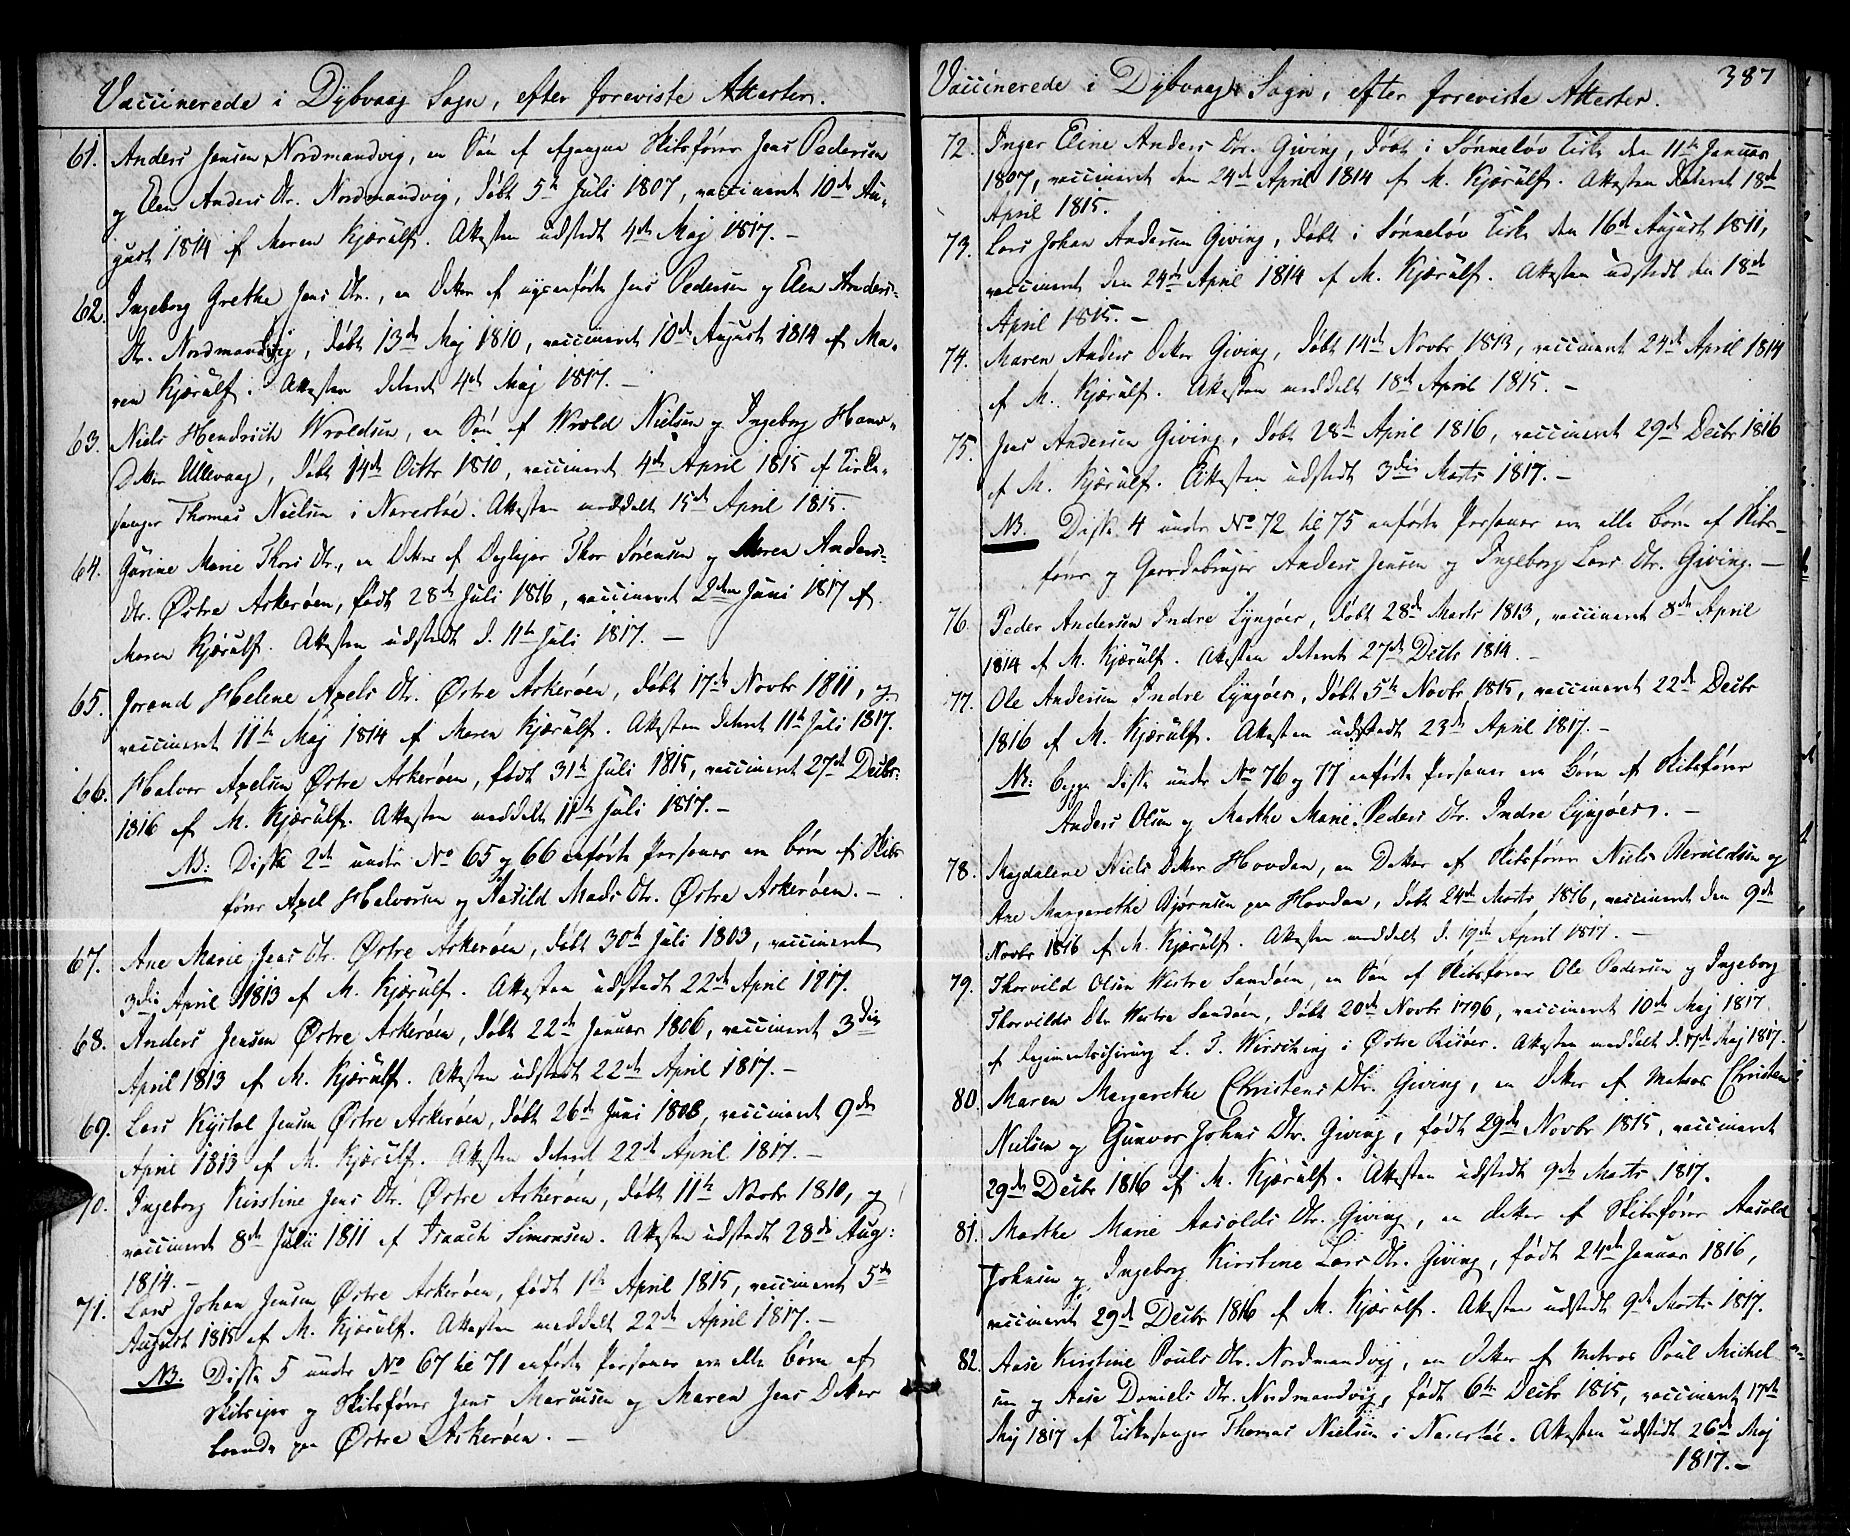 Vaccinerede i Dybvaag Sogn, efter foreviste Attester.
61. Anders Jensen Nordmandvig, en Søn af Skibsfører Jens Pedersen
og Elen Anders Dtr. Nordmandvig, døbt 5te Juli 1807, vaccineret 10de Au-
gust 1814 af Maren Kjærülf. Attesten udstedt 4de Maj 1817.-
62. Ingeborg Grethe Jens Dtr., en Datter af Jens Pedersen og Elen Anders-
Dtr. Nordmandvig, døbt 13de Maj 1810, vaccineret 10de August 1814 af Ma-
ren Kjærülf. Attesten dateret 4de Maj 1817.-
63. Niels Hendrich Wroldsen, en Søn af Wrold Nielsen og Ingeborg Hans-
Datter Ullevaag, døbt 14de Octbr 1810, vaccineret 4de April 1815 af Kirke-
sanger Thomas Nielsen i Narestøe. Attesten meddelt 15de April 1815.
64. Gurine Marie Thors Dtr., en Datter af Thor Sørensen og Maren Anders-
Dtr. Østre Askerøen, født 28de Juli 1816, vaccineret 2den Juni 1817 af
Maren Kjærülf. Attesten udstedt d. 11te Juli 1817.-
65. Jorand Helene Axels Dtr. Østre Askerøen, døbt 17de Novbr 1811, og
vaccineret 11te Maj 1814 af Maren Kjærülf. Attesten dateret 11te Juli 1817.
66. Halvor Axelsen Østre Askerøen, født 31te Juli 1815, vaccineret 27de Decbr:
1816 af M. Kjærülf. Attesten meddelt 11te Juli 1817.-
NB: Diße 2de under No 65 og 66 anførte Personer ere børn af Skibs
fører Axel Halvorsen og Aasild Mads Dtr. Østre Askerøen.-
67. Ane Marie Jens Dtr. Østre Askerøen, døbt 30te Juli 1803, vaccineret
3die April 1813 af M. Kjærülf. Attesten udstedt 22de April 1817.
68. Anders Jensen Østre Askerøen, døbt 22de Januar 1806, vaccineret 3die
April 1813 af M. Kjærülf. Attesten udstedt 22de April 1817.-
69. Lars Jensen Østre Askerøen, døbt 26de Juni 1808, vaccineret 9de
April 1813 af M. Kjærülf. Attesten dateret 22de April 1817.-
70. Ingeborg Kirstine Jens Dtr. Østre Askerøen, døbt 11te Novbr 1810, og
vaccineret 8de Julii 1811 af Isaach Simonsen. Attesten udstedt 28de Aug:
1814.-
71. Lars Johan Jensen Østre Askerøen, født 1ste April 1815, vaccineret 5te
August 1815 af M. Kjærülf. Attesten meddelt 22de April 1817.-
NB. Diße 5 under No 67 til 71 anførte Personer ere alle børn af
Skibsejer og Skibsfører Jens Marcusen og Maren Jens Datter
boende paa Østre Askerøen.-
387
Vaccinerede i Dybvaag Sogn, efter foreviste Attester.
72. Inger Eline Anders Dtr. Giving, døbt i Sønneløv Kirke den 11te Januar
1807, vaccineret den 24de April 1814 af M. Kjærülf. Attesten dateret 18de
April 1815.
73. Lars Johan Andersen Giving, døbt i Sønneløv Kirke den 16de August 1811,
vaccineret den 24de April 1814 af M. Kjærülf. Attesten udstedt den 18de
April 1815.-
74. Maren Anders Datter Giving, døbt 14de Novbr 1813, vaccineret 24de April 1814
af M. Kjærülf. Attesten meddelt 18de April 1815.-
75. Jens Andersen Giving, døbt 28de April 1816, vaccineret 29de Decbr 1816
af M. Kjærülf. Attesten udstedt 3die Marts 1817.-
NB. Diße 4 under No 72 til 75 anførte Personer ere alle børn af Skibs-
fører og Gaardebruger Anders Jensen og Ingeborg Lars Dtr. Giving.-
76. Peder Andersen Indre Lyngøer, døbt 28de Marts 1813, vaccineret 8de April
1814 af M. Kjærülf. Attesten dateret 27de Decbr 1814.-
77. Ole Andersen Indre Lyngøer, døbt 5te Novbr 1815, vaccineret 22de Decbr
1816 af M. Kjærülf. Attesten udstedt 23de April 1817.-
NB: begge diße under No 76 og 77 anførte Personer ere børn af Skibsfører
Anders Olsen og Marthe Marie Peders Dtr. Indre Lyngøer.-
78. Magdalene Niels Datter Hovdan, en Datter af Skibsfører Niels Beruldsen og
Ane Margarethe Bjørnsen paa Hovdan, døbt 24de Marts 1816, vaccineret den 9de
Novbr 1816 af M. Kjærülf. Attesten meddelt d. 19de April 1817.-
79. Thorvild Olsen Westre Sandøen, en Søn af Skibsfører Ole Pedersen og Ingeborg
Thorvilds Dtr Westre Sandøen, døbt 20de Novbr 1796, vaccineret 10de Maj 1817
af Regimentschirurg L. T. Wirsching i Østre Riisøer. Attesten meddelt d. 17de Maj 1817.
80. Maren Margarethe Christens Dtr. Giving, en Datter af Matros Christen
Nielsen og Gunvor Johns Dtr. Giving, født 29de Novbr 1815, vaccineret
29de Decbr 1816 af M. Kjærülf. Attesten udstedt 9de Marts 1817.
81. Marthe Marie Aasolds Dtr. Giving, en Datter af Skibsfører Aasold
Johnsen og Ingeborg Kirstine Lars Dtr. Giving, født 24de Januar 1816,
vaccineret 29de Decbr 1816 af M. Kjærülf. Attesten udstedt 9de Marts 1817.
82. Aase Kirstine Pouls Dtr. Nordmandvig, en Datter af Matros Poul Michel-
sen og Aase Daniels Dtr. Nordmandvig, født 6te Decbr 1815, vaccineret 17de
Maj 1817 af Kirkesanger Thomas Nielsen i Narestøe. Attesten udstedt 26de Maj
1817.-